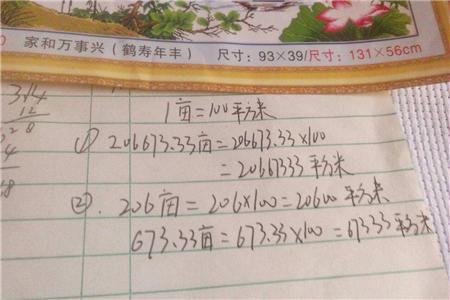 家和万事兴（鹤寿年丰） 尺寸：93×39/尺寸：131×56cm
314
12
28
4
1亩=100平方米
① 206673.33亩=206673.33×100
=20667333平方米
②. 206亩=206×100=20600平方米
673.33亩=673.33×100=67333平方米